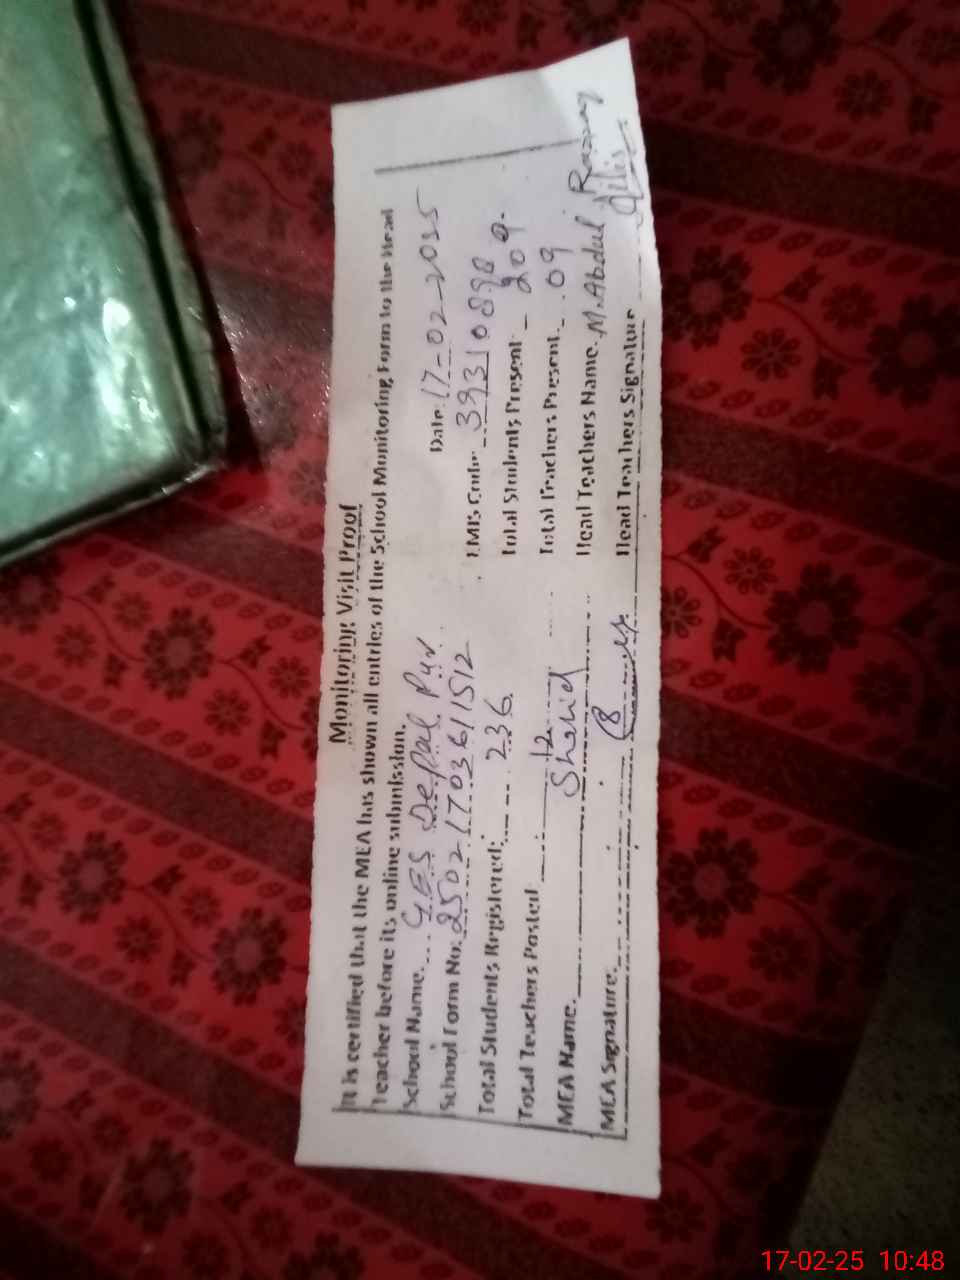 Monitoring Visit Proof
It is certified that the MEA has shown all entries of the School Monitoring Form to the Head
Teacher before its online submission. Date: 17-02-2025
School Name: GES Depal Pur EMIS Code: 39310898
School Form No: 2502170361512 Total Students Present 209
Total Students Registered: 236 Total Teachers Present 09
Total Teachers Posted 12 Head Teachers Name: M. Abdul Razzaq
MEA Name: Head Teachers Signature
MEA Signature:
17-02-25 10:48